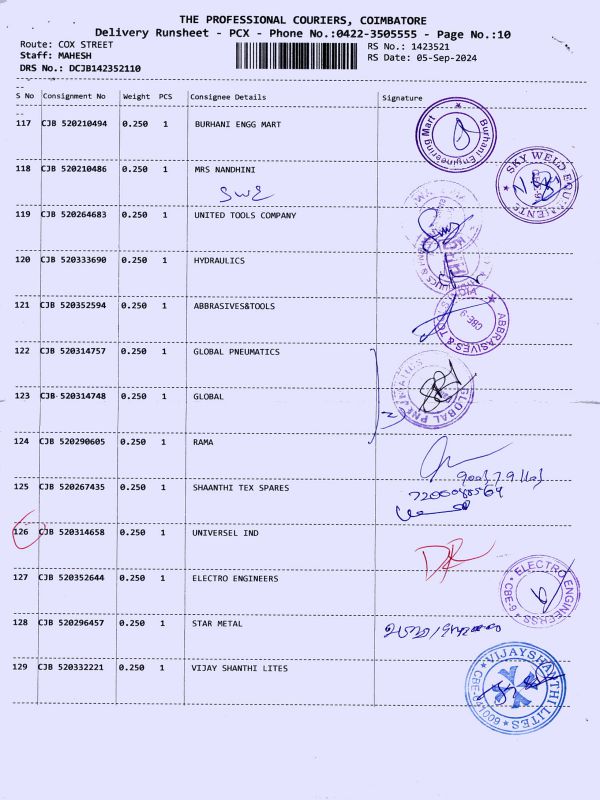 THE PROFESSIONAL COURIERS, COIMBATORE
Delivery Runsheet - PCX - Phone No.:0422-3505555 - Page No.:10
Route: COX STREET
Staff: MAHESH
DRS No.: DCJB142352110
RS No.: 1423521
RS Date: 05-Sep-2024
S No Consignment No Weight PCS Consignee Details Signature
117 CJB 520210494 0.250 1 BURHANI ENGG MART
Burhani Engineering Mart
118 CJB 520210486 0.250 1 MRS NANDHINI
SKY WELD EQUIPMENTS
119 CJB 520264683 0.250 1 UNITED TOOLS COMPANY
120 CJB 520333690 0.250 1 HYDRAULICS
121 CJB 520352594 0.250 1 ABBRASIVES&TOOLS
ABBRASIVES & TOOLS
CBE-9
122 CJB 520314757 0.250 1 GLOBAL PNEUMATICS
123 CJB 520314748 0.250 1 GLOBAL
GLOBAL PNEUMATICS
124 CJB 520290605 0.250 1 RAMA
125 CJB 520267435 0.250 1 SHAANTHI TEX SPARES
126 CJB 520314658 0.250 1 UNIVERSEL IND
127 CJB 520352644 0.250 1 ELECTRO ENGINEERS
ELECTRO ENGINEERSS
CBE-6
128 CJB 520296457 0.250 1 STAR METAL
129 CJB 520332221 0.250 1 VIJAY SHANTHI LITES
VIJAYSHANTHI LITES
CBE-641009